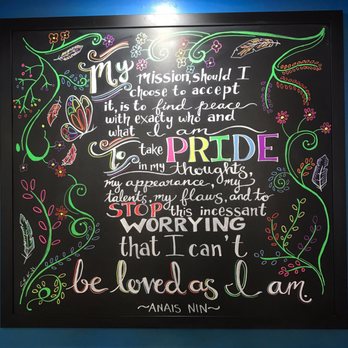 My
mission, should I
choose to accept
it, is to find peace
with exactly who and
what I am
To take PRIDE
in my thoughts,
my appearance, my
talents, my flaws, and to
STOP this incessant
WORRYING
that I can't
be loved as I am.
~ANAIS NIN~